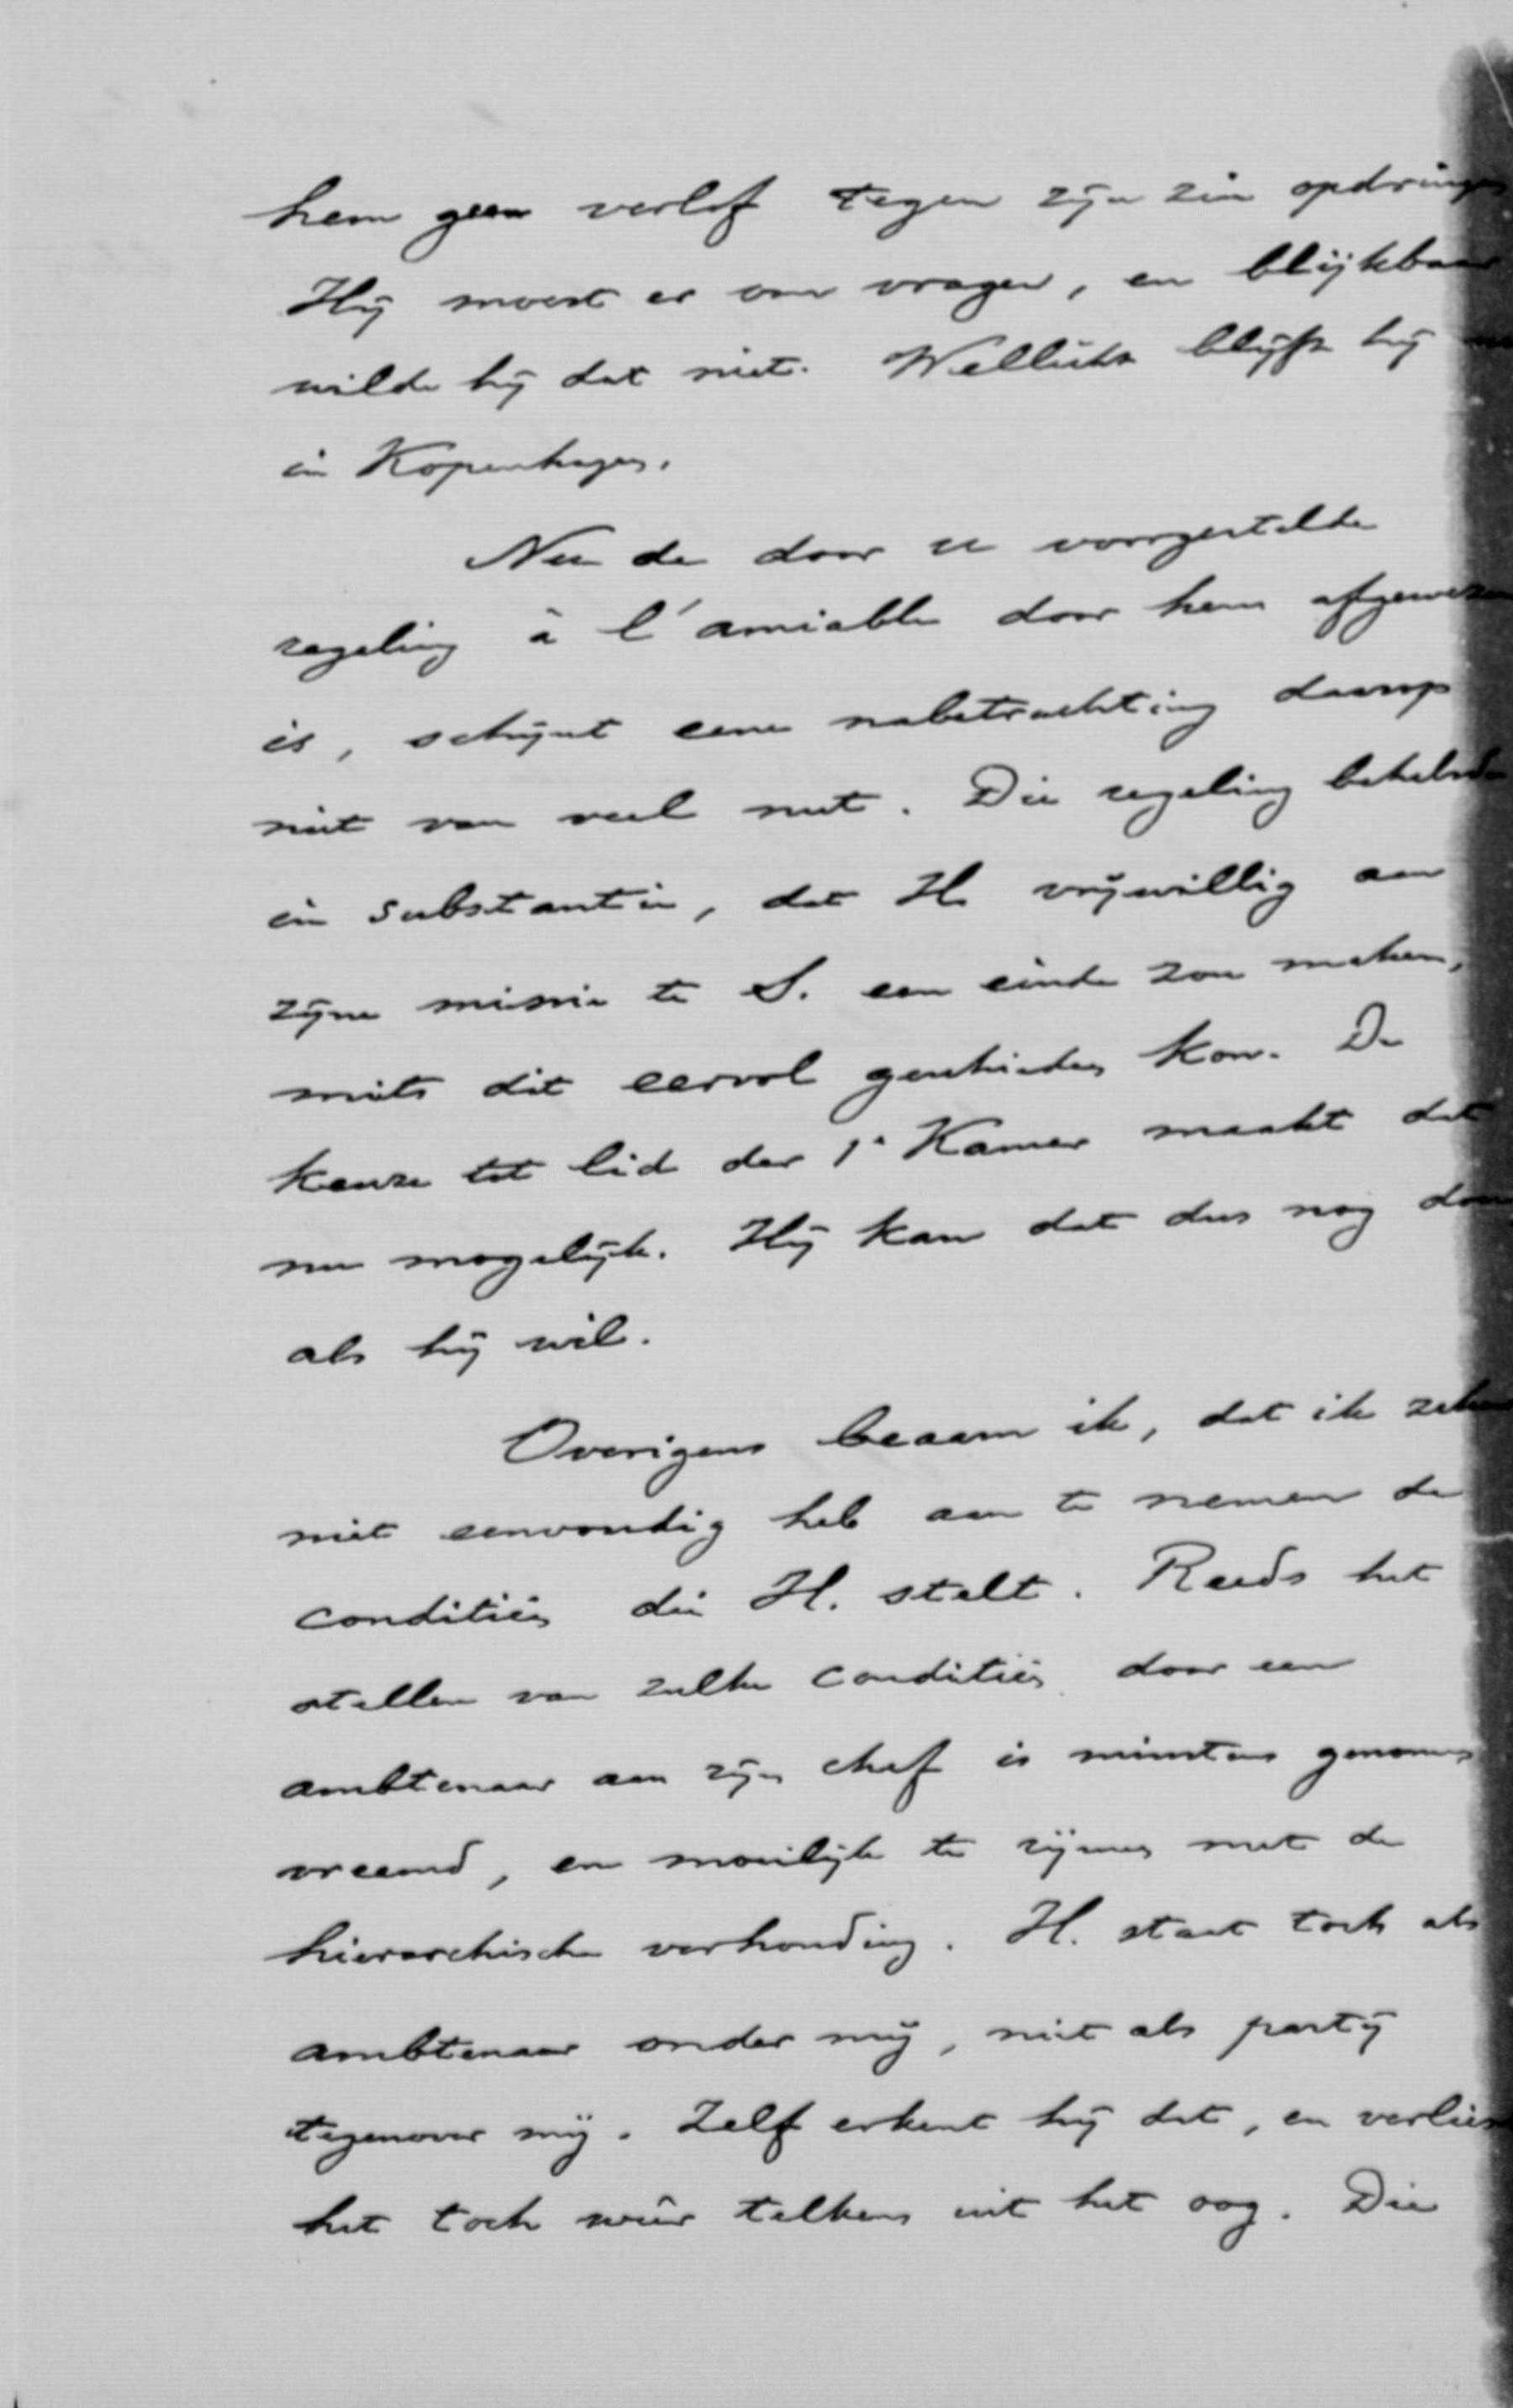 hem geen verlof tegen zijn zin opdringen
Hij moest er om vragen, en blijkbaar
wilde hij dat niet. Wellicht blijft hij
in Kopenhagen.
Nu de door u voorgestelde
regeling à l'amiable door hem afgewezen
is, schijnt eene nabetrachting daarop
niet van veel nut. Die regeling behelsde
in substantie, dat H. vrijwillig aan
zijne missie te S. een einde zou maken,
mits dit eervol geschieden kon. De
keuze tot lid der 1e Kamer maakt dat
nu mogelijk. Hij kan dat dus nog doen
als hij wil.
Overigens beaam ik, dat ik zeker
niet eenvoudig heb aan te nemen de
conditiën die H. stelt. Reeds het
stellen van zulke conditiën door een
ambtenaar aan zijn chef is minstens genomen
vreemd, en moeilijk te rijmen met de
hierarchische verhouding. H. staat toch als
ambtenaar onder mij, niet als partij
tegenover mij. Zelf erkent hij dat, en verliest
het toch weêr telkens uit het oog. Die